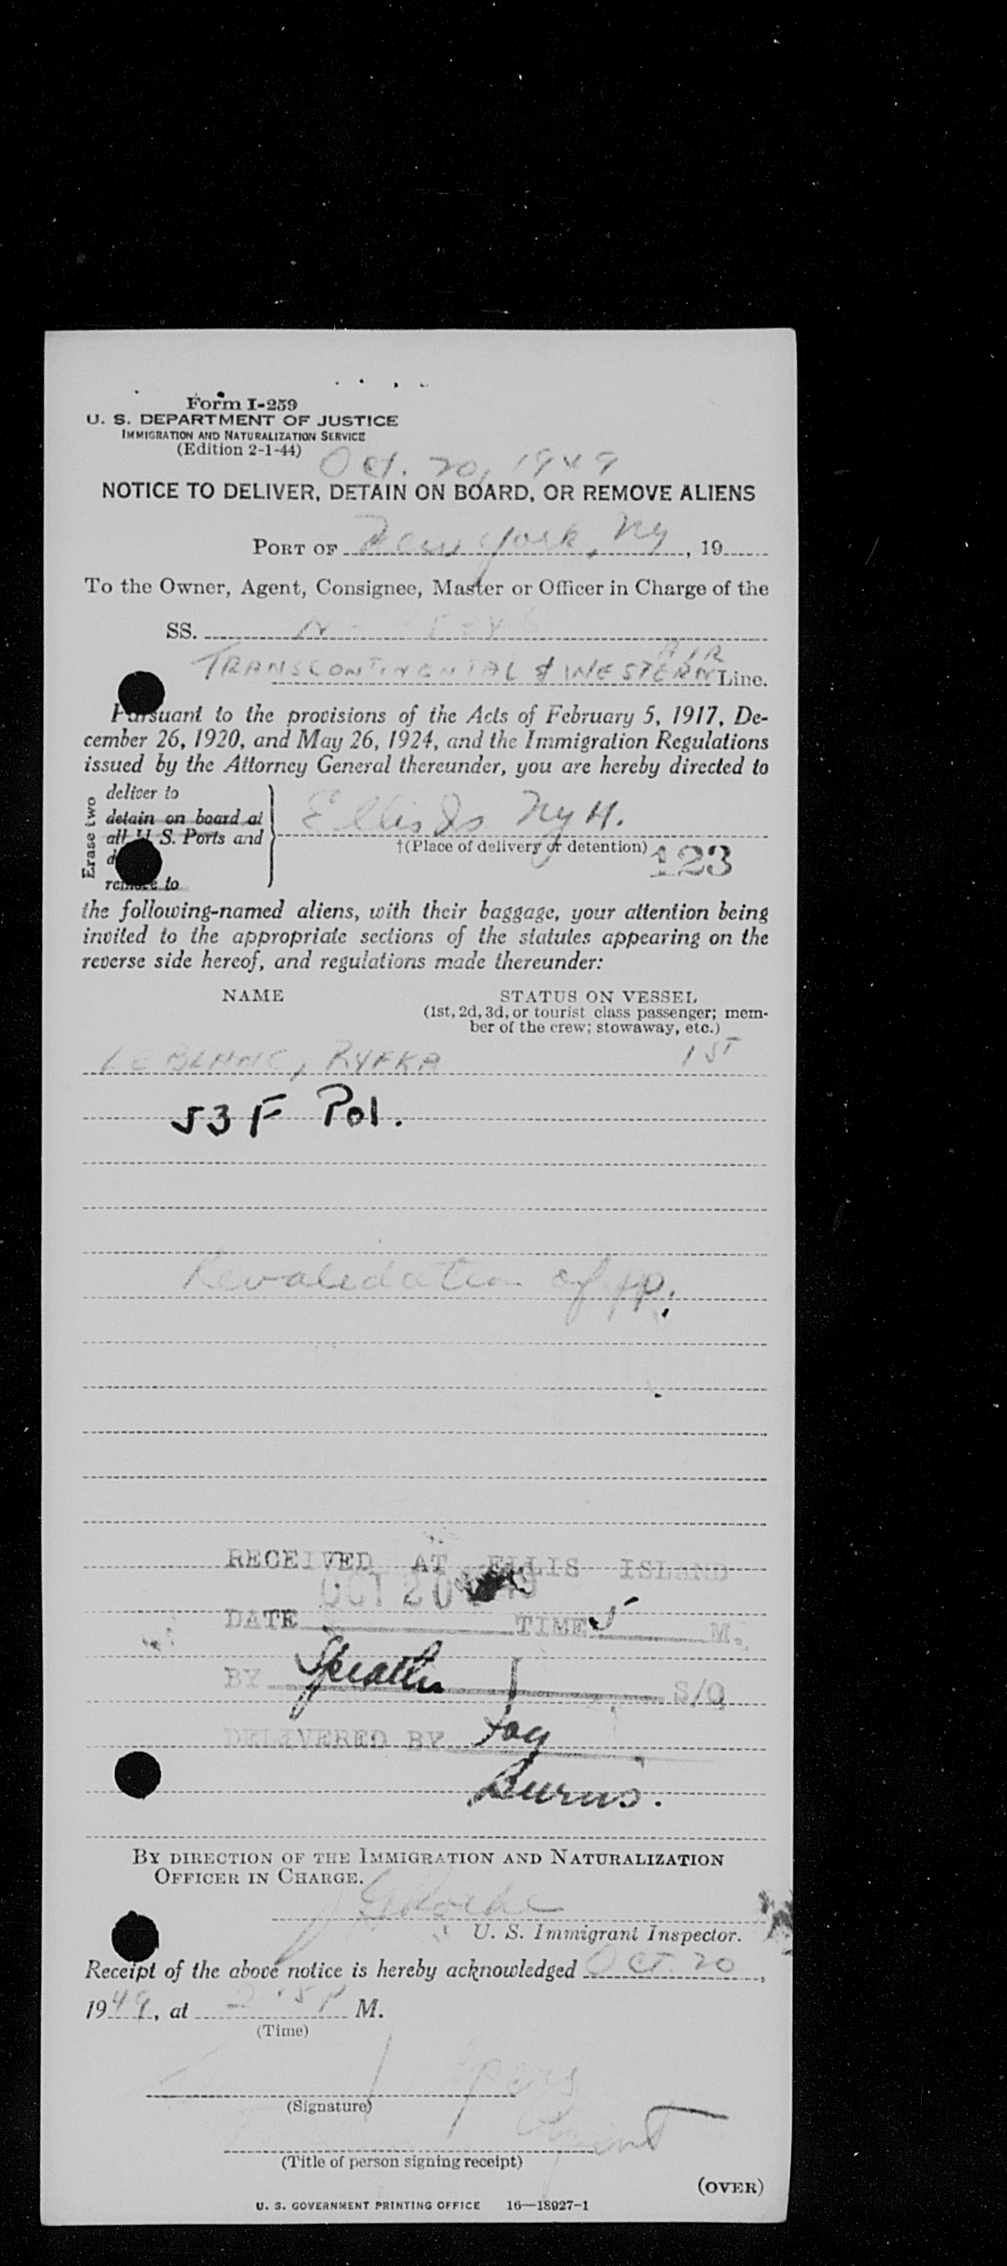 Form I-259
U. S. DEPARTMENT OF JUSTICE
IMMIGRATION AND NATURALIZATION SERVICE
(Edition 2-1-44)
Oct. 20, 1949
NOTICE TO DELIVER, DETAIN ON BOARD, OR REMOVE ALIENS
PORT OF New York, Ny, 19
To the Owner, Agent, Consignee, Master or Officer in Charge of the
SS.
AIR
TRANSCONTINENTAL & WESTERN Line.
Pursuant to the provisions of the Acts of February 5, 1917, De-
cember 26, 1920, and May 26, 1924, and the Immigration Regulations
issued by the Attorney General thereunder, you are hereby directed to
Erase two
deliver to
detain on board at
all U S. Ports and
remove to
Ellis Is NyH.
†(Place of delivery or detention)
123
the following-named aliens, with their baggage, your attention being
invited to the appropriate sections of the statutes appearing on the
reverse side hereof, and regulations made thereunder:
NAME STATUS ON VESSEL
(1st, 2d, 3d, or tourist class passenger; mem-
ber of the crew; stowaway, etc.)
LEBLANC, RYFKA 1ST
53 F Pol.
Revalidation of pp.
RECEIVED AT ELLIS ISLAND
OCT 20 1949
DATE TIME 5 M.
BY S/O
DELIVERED BY
Burns.
BY DIRECTION OF THE IMMIGRATION AND NATURALIZATION
OFFICER IN CHARGE.
U. S. Immigrant Inspector.
Receipt of the above notice is hereby acknowledged Oct. 20,
1949, at M.
(Time)
(Signature)
Agent
(Title of person signing receipt)
(OVER)
U. S. GOVERNMENT PRINTING OFFICE 16—18927-1